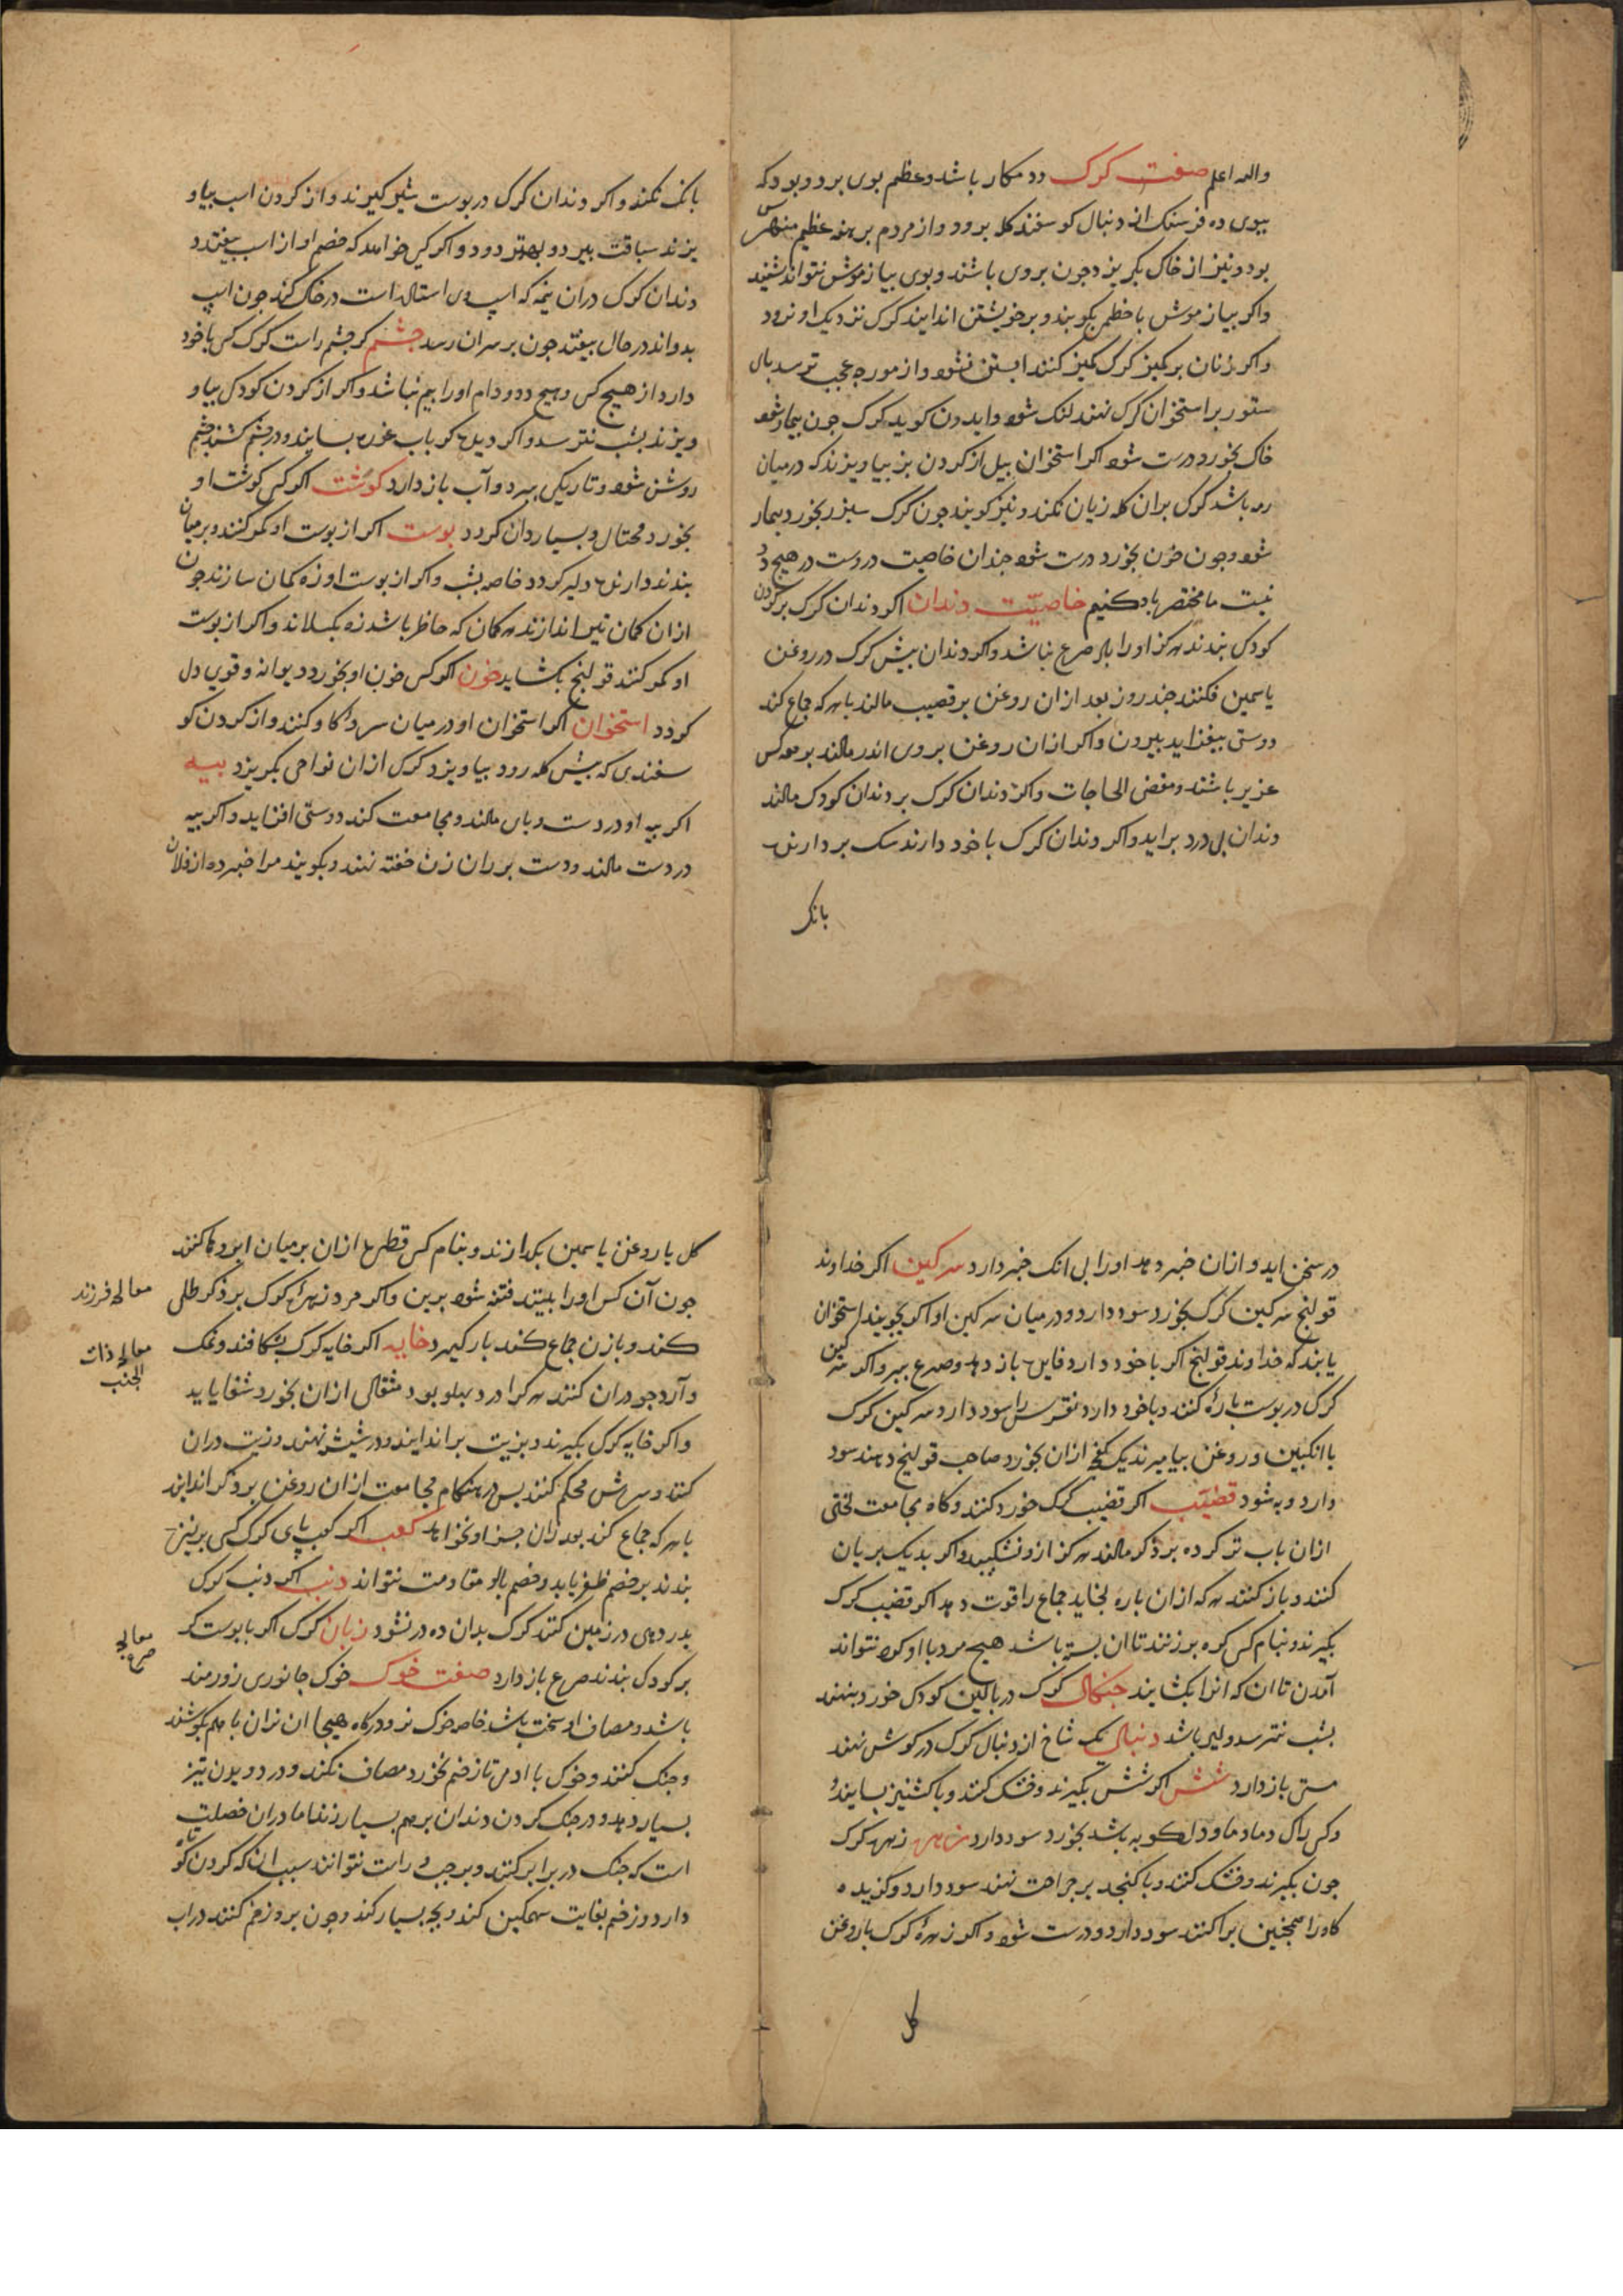 والله اعلم صفت کرک دد مکار باشد وعظم بوی برد وبود که
ببوی ده فرسنک از دنبال کوسفند کله برود واز مردم برهنه عظیم
بود ونیز از خاک بکریزد وجون بروی باشند وبوی بیاز موش نتواند شنید
واکر بیاز موش با خطمی بکوبند وبر خویشتن اندایند کرک نزدیک او نرود
واکر زنان بر کمیز کرک کمیز کنند ابستن نشود واز مورجه عجب ترسد بای
ستور بر استخوان کرک نهند لنک شود وایدون کوید کرک جون بیمار شود
خاک بخورد درست شود اکر استخوان بیل از کردن بز بیاویزند که درمیان
رمه باشد کرک بران کله زیان نکند ونیز کویند جون کرک سیر بخورد بیمار
شود وجون خون بخورد درست شود جندان خاصیت دروست در هیج دد
نیست ما مختصر یاد کنیم خاصیّت دندان اکر دندان کرک بر کردن
کودک بندند هرکز اورا باد صرع نباشد واکر دندان بیش کرک در روغن
یاسمین فکنند جند روز بعد ازان روغن بر قضیب مالند با هرکه جماع کند
دوستی بیفزاید بیرون واکر ازان روغن بروی اندر مالند بر همه کس
عزیز باشند ومقضی الحاجات واکر دندان کرک بر دندان کودک مالند
دندان بی درد براید واکر دندان کرک باخود دارند سک بر دارنده
بانک
بانک نکند واکر دندان کرک دربوست شیر کیرند واز کردن اسب بیاو
یزند سباقت ببرد وبهتر دود واکر کسی خواهد که خصم او از اسب بیفتد
دندان کرک دران نیمه که اسب وی استاده است درخاک کند جون اسب
بدواند درحال بیفتد جون بر سر ان رسد جشم کر جشم راست کرک کسی باخود
دارد از هیج کس وهیج دد ودام اورا بیم نباشد واکر از کردن کودک بیاو
ویزند بشب نترسد واکر دیده کر باب غوره بسایند ودرجشم کشند جشم
روشن شود وتاریکی ببرد وآب باز دارد کوشت اکر کسی کوشت او
بخورد محتال وبسیاردان کردد بوست اکر از بوست او کمر کنند وبرمیان
بندند دارنده دلیر کردد خاصه بشب واکر از بوست او زه کمان سازند جون
ازان کمان تیر اندازند هر کمان که حاظر باشد زه بکسلاند واکر از بوست
او کمر کنند قولنج بکشاید خون اکر کس خون او بخورد دیوانه وقوی دل
کردد استخوان اکر استخوان او درمیان سروی کاو کنند واز کردن کو
سفندی که بیش کله رود بیاویزد کرک ازان نواحی بکریزد بیه
اکر بیه او دردست وبای مالند ومجامعت کند دوستی افزاید واکر بیه
دردست مالند ودست بر ران زن خفته نهند وبکویند مرا خبر ده از فلان
در سخن اید وازان خبر دهد اورا بی انک خبر دارد سرکین اکر خداوند
قولنج سرکین کرک بخورد سود دارد ودرمیان سرکین او اکر بجویند استخوان
یابند که خداوند قولنج اکر باخود دارد فایده باز دهد وصرع ببرد واکر سرکین
کرک در بوست باره کنند وباخود دارد نقرس را سود دارد سرکین کرک
با انکبین وروغن بیامیزند یک کفچه ازان بخورد صاحب قولنج دهند سود
دارد وبه شود قضیّب اکر قضیب کرک خورد کنند وکاه مجامعت لختی
ازان باب تر کرده بر ذکر مالند هرکز ازو نشکیبد واکر بدیک بریان
کنند وباز کنند هرکه ازان باره بخاید جماع را قوت دهد اکر قضیب کرک
بکیرند وبنام کسی کره برزنند تا ان بسته باشد هیج مرد با او کرد نتواند
آمدن تا ان که انرا بکشایند جنکال کرک در بالین کودک خورد بنهند
بشب نترسد ودلیر باشد دنبال یک شاخ از دنبال کرک درکوش نهند
مستی باز دارد شش اکر شش بکیرند وخشک کنند وبا کشنیز بسایند و
وکسی را که دماد ما ودل کوبه باشد بخورد سود دارد زهره زهره کرک
جون بکیرند وخشک کنند وبا کنجد بر جراحت نهند سود دارد وکزیده
کاه را همجنین براکنند سود دارد ودرست شود واکر زهرهٔ کرک با روغن
کل
کل یا روغن یاسمین بکدازند وبنام کس قطرهٔ ازان برمیان ابروها کنند
جون آن کس اورا ببیند فتنه شود برین واکر مرد زهرهٔ کرک بر ذکر طلی
کند وبا زن جماع کند بار کیرد خایه اکر خایه کرک بشکافند ونمک
وآرد جو دران کنند هرکرا درد بهلو بود مثقالی ازان بخورد شفا یابد
واکر خایه کرک بکیرند وبزیت براندایند ودرشیشه نهند وزیت دران
کنند وسرش محکم کنند بس در هنکام مجامعت ازان روغن بر ذکر اندایند
با هرکه جماع کند بعد ازان جز او نخواهد کعب اکر کعب بای کرک کسی بر نیزه
بندند بر خصم ظفر یابد وخصم با او مقاومت نتواند دنب اکر دنب کرک
بدر دهی در زمین کنند کرک بدان ده در نشود زبان کرک اکر با بوست کر
بر کودک بندند صرع باز دارد صفت خوک خوک جانوری زورمند
باشد ومصاف او سخت باشد خاصه خوک نر ودرکاه هیجا ان نران با هم بکوشند
وجنک کنند وخوک با ادمی تا زخم نخورد مصاف نکند ودر دویدن تیز
بسیار دهد ودر جنک کردن دندان برهم بسیار زند اما دران خصلت
است که جنک در برابر کنند وبرجب وراست نتوانند سبب ان که کردن کوتاه
دارد وزخم بغایت سهمکین کند وبجه بسیار کند وجون برو زخم کنند دراب
معالج فرزند
معالج ذات
الجنب
معالج
صرع